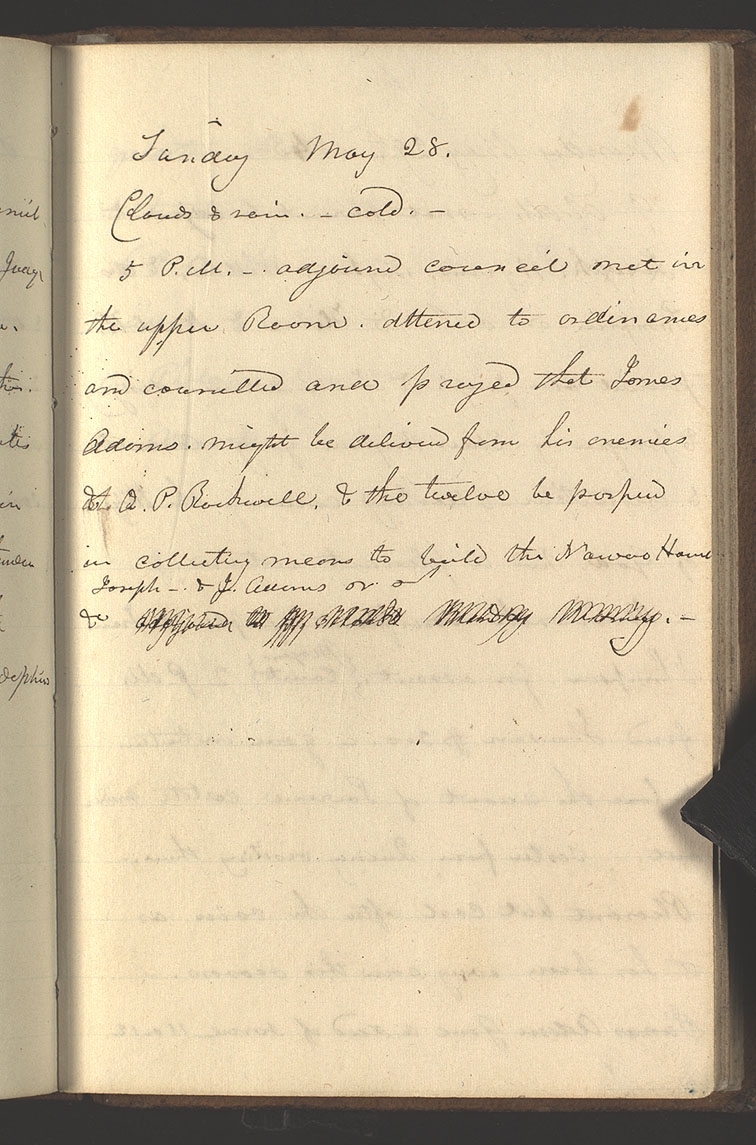 Sunday May 28.
Clouds & rain. – cold. –
5 P.M. – adjournd council met in
the upper Room. attened to ordinances
and counselled and prayed that James
Adams. might be deliverd from his enemies
& O. P. Rockwell. & the twelve be prosperd
in collecting means to build the Nauvoo House
Joseph – & J. Adams
& adjourned
niel
Judge
delphia